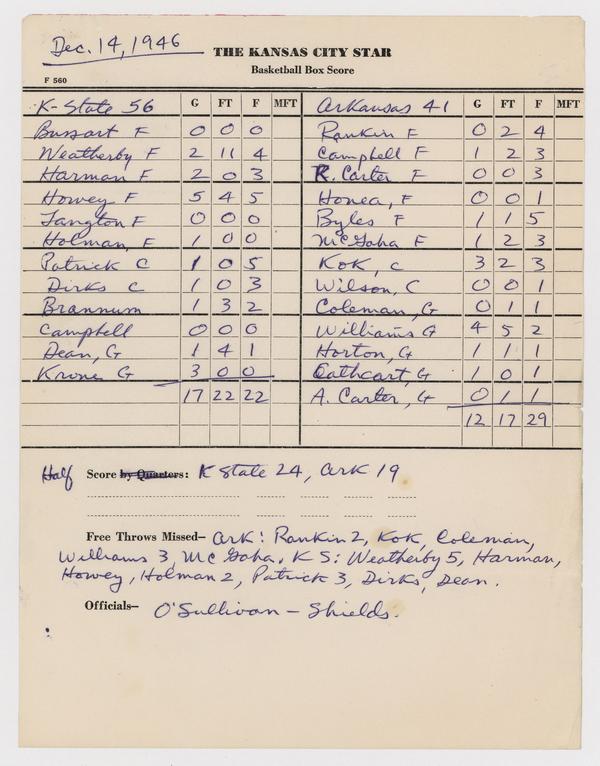 Dec. 14, 1946
THE KANSAS CITY STAR
Basketball Box Score
F 560
K-State 56 G FT F MFT Arkansas 41 G FT F MFT
Bussart F 0 0 0 Rankin F 0 2 4
Weatherby F 2 11 4 Campbell F 1 2 3
Harman F 2 0 3 R. Carter F 0 0 3
Howey F 5 4 5 Honea, F 0 0 1
Langton F 0 0 0 Byles F 1 1 5
Holman, F 1 0 0 McGaha F 1 2 3
Patrick C 1 0 5 Kok, C 3 2 3
Dirks C 1 0 3 Wilson, C 0 0 1
Brannum 1 3 2 Coleman, G 0 1 1
Campbell 0 0 0 Williams G 4 5 2
Dean, G 1 4 1 Horton, G 1 1 1
Krone G 3 0 0 Cathcart, G 1 0 1
17 22 22 A. Carter, G 0 1 1
12 17 29
Half Score by Quarters: K State 24, Ark 19
Free Throws Missed— Ark: Rankin 2, Kok, Coleman,
Williams 3, McGaha. K S: Weatherby 5, Harman,
Howey, Holman 2, Patrick 3, Dirks, Dean.
Officials— O'Sullivan — Shields.